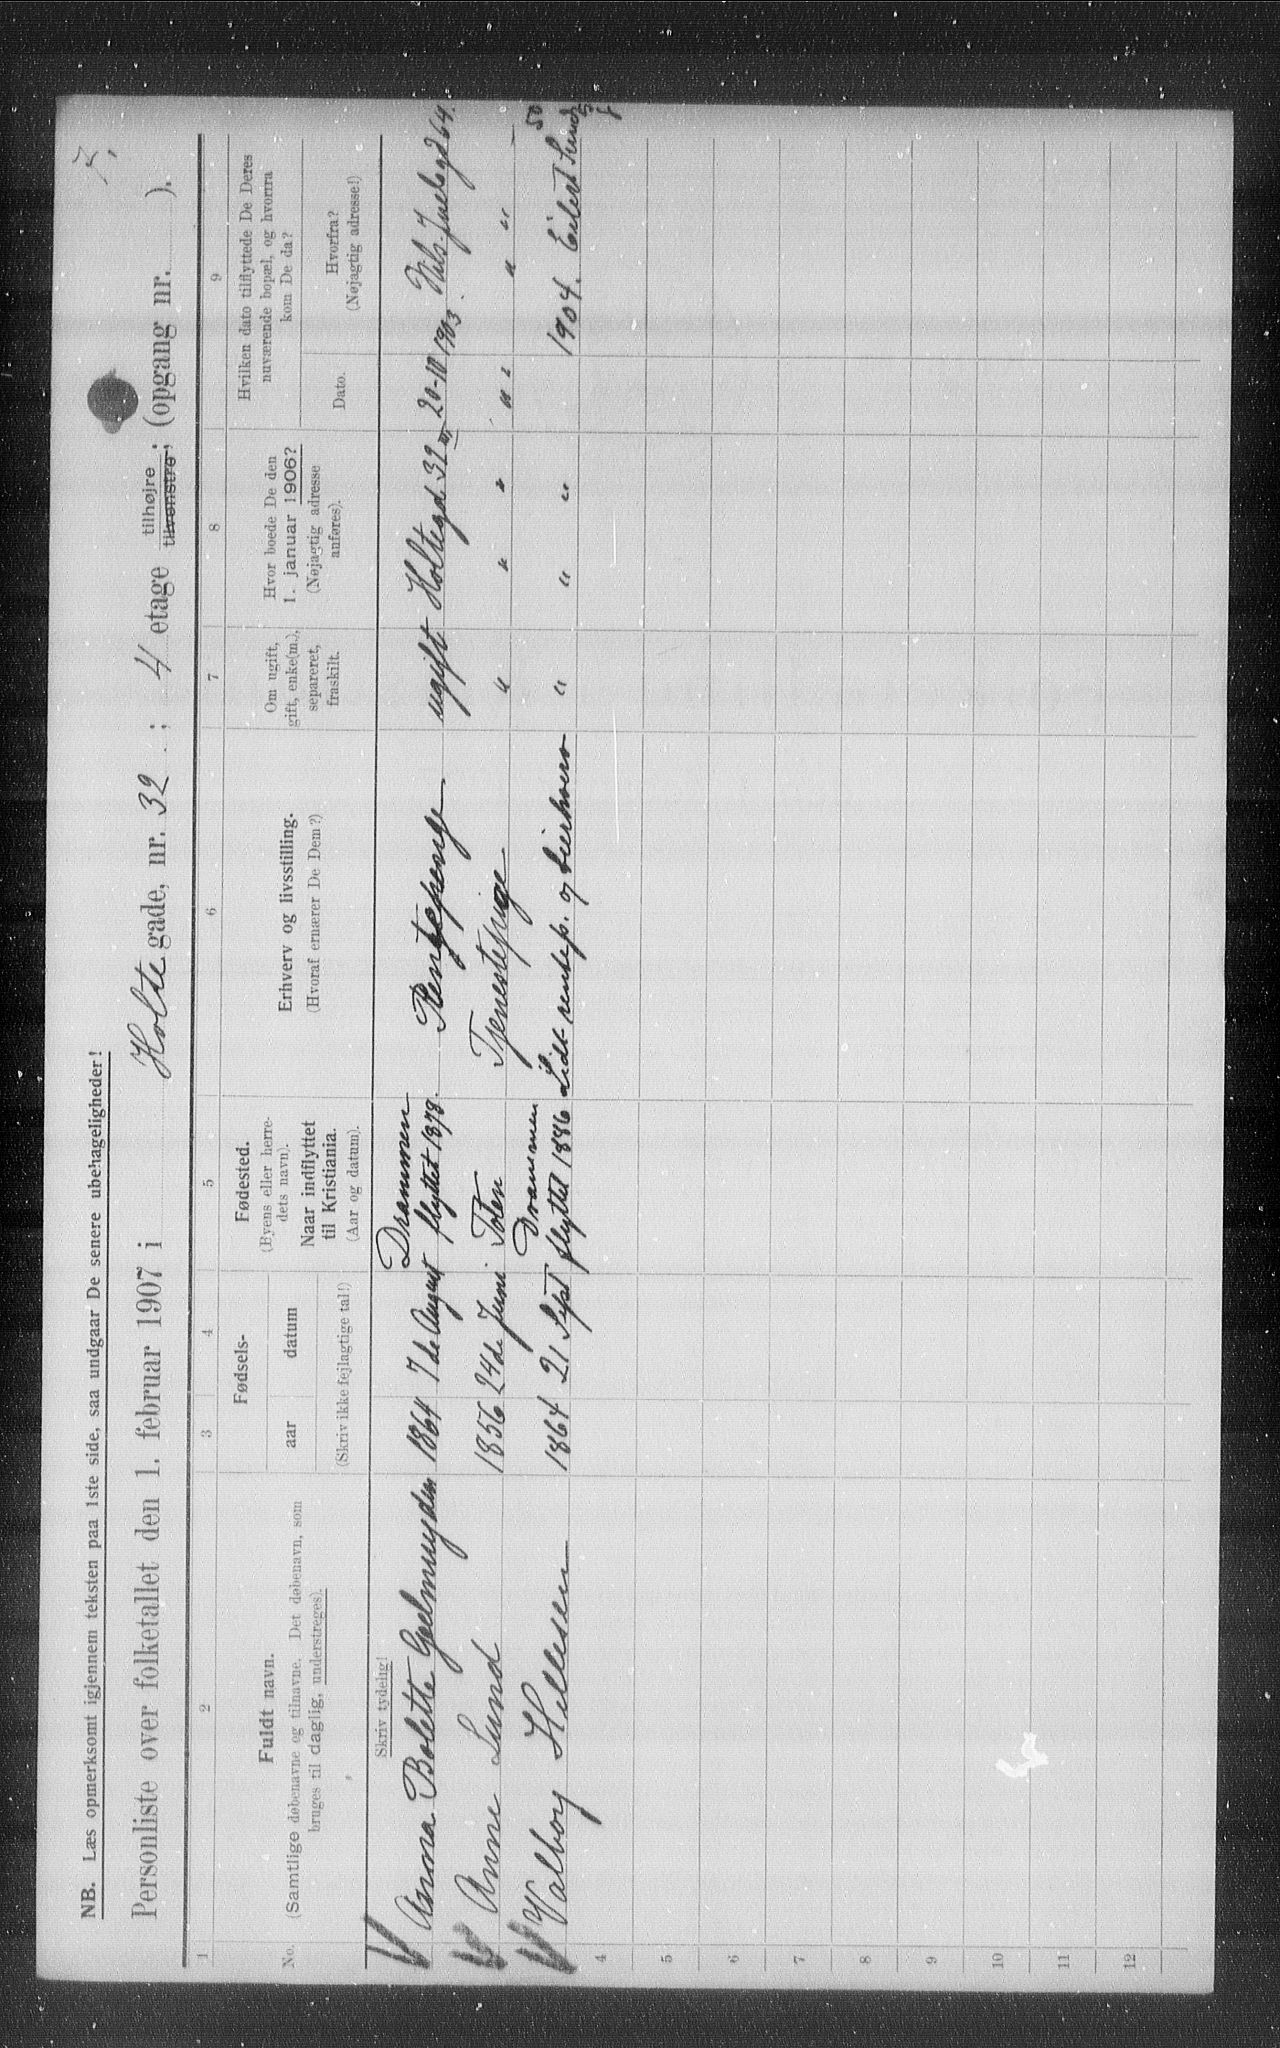 7,
NB. Læs opmerksomt igjennem teksten paa 1ste side, saa undgaar De senere ubehageligheder!
Personliste over folketallet den 1. februar 1907 i Holte gade, nr. 32 ; 4 etage tilhøjre tilvenstre ; (opgang nr. ).
1 2 3 4 5 6 7 8 9
No.
Fuldt navn.
(Samtlige døbenavne og tilnavne. Det døbenavn, som
bruges til daglig, understreges).
Fødsels-
aar datum
(Skriv ikke fejlagtige tal!)
Fødested.
(Byens eller herre-
dets navn).
Naar indflyttet
til Kristiania.
(Aar og datum).
Erhverv og livsstilling.
(Hvoraf ernærer De Dem?)
Om ugift,
gift, enke(m.),
separeret,
fraskilt.
Hvor boede De den
1. januar 1906?
(Nøjagtig adresse
anføres).
Hvilken dato tilflyttede De Deres
nuværende bopæl, og hvorfra
kom De da?
Dato.
Hvorfra?
(Nøjagtig adresse!)
Skriv tydelig!
Drammen
Anna Bolette Gjelmuyden 1864 7de August flyttet 1878. Rentepenge ugift Holtegd 32 20-10 1903. Nils Juelsgd 64.
Anne Lund 1856 24de Juni Toten Tjenestepige " " " " " " "
Drammen
Valborg Hellesen 1864 21 Sept flyttet 1886 Lidt rentep. og " " " 1904. Eilert Sund 50
4
5
6
7
8
9
10
11
12